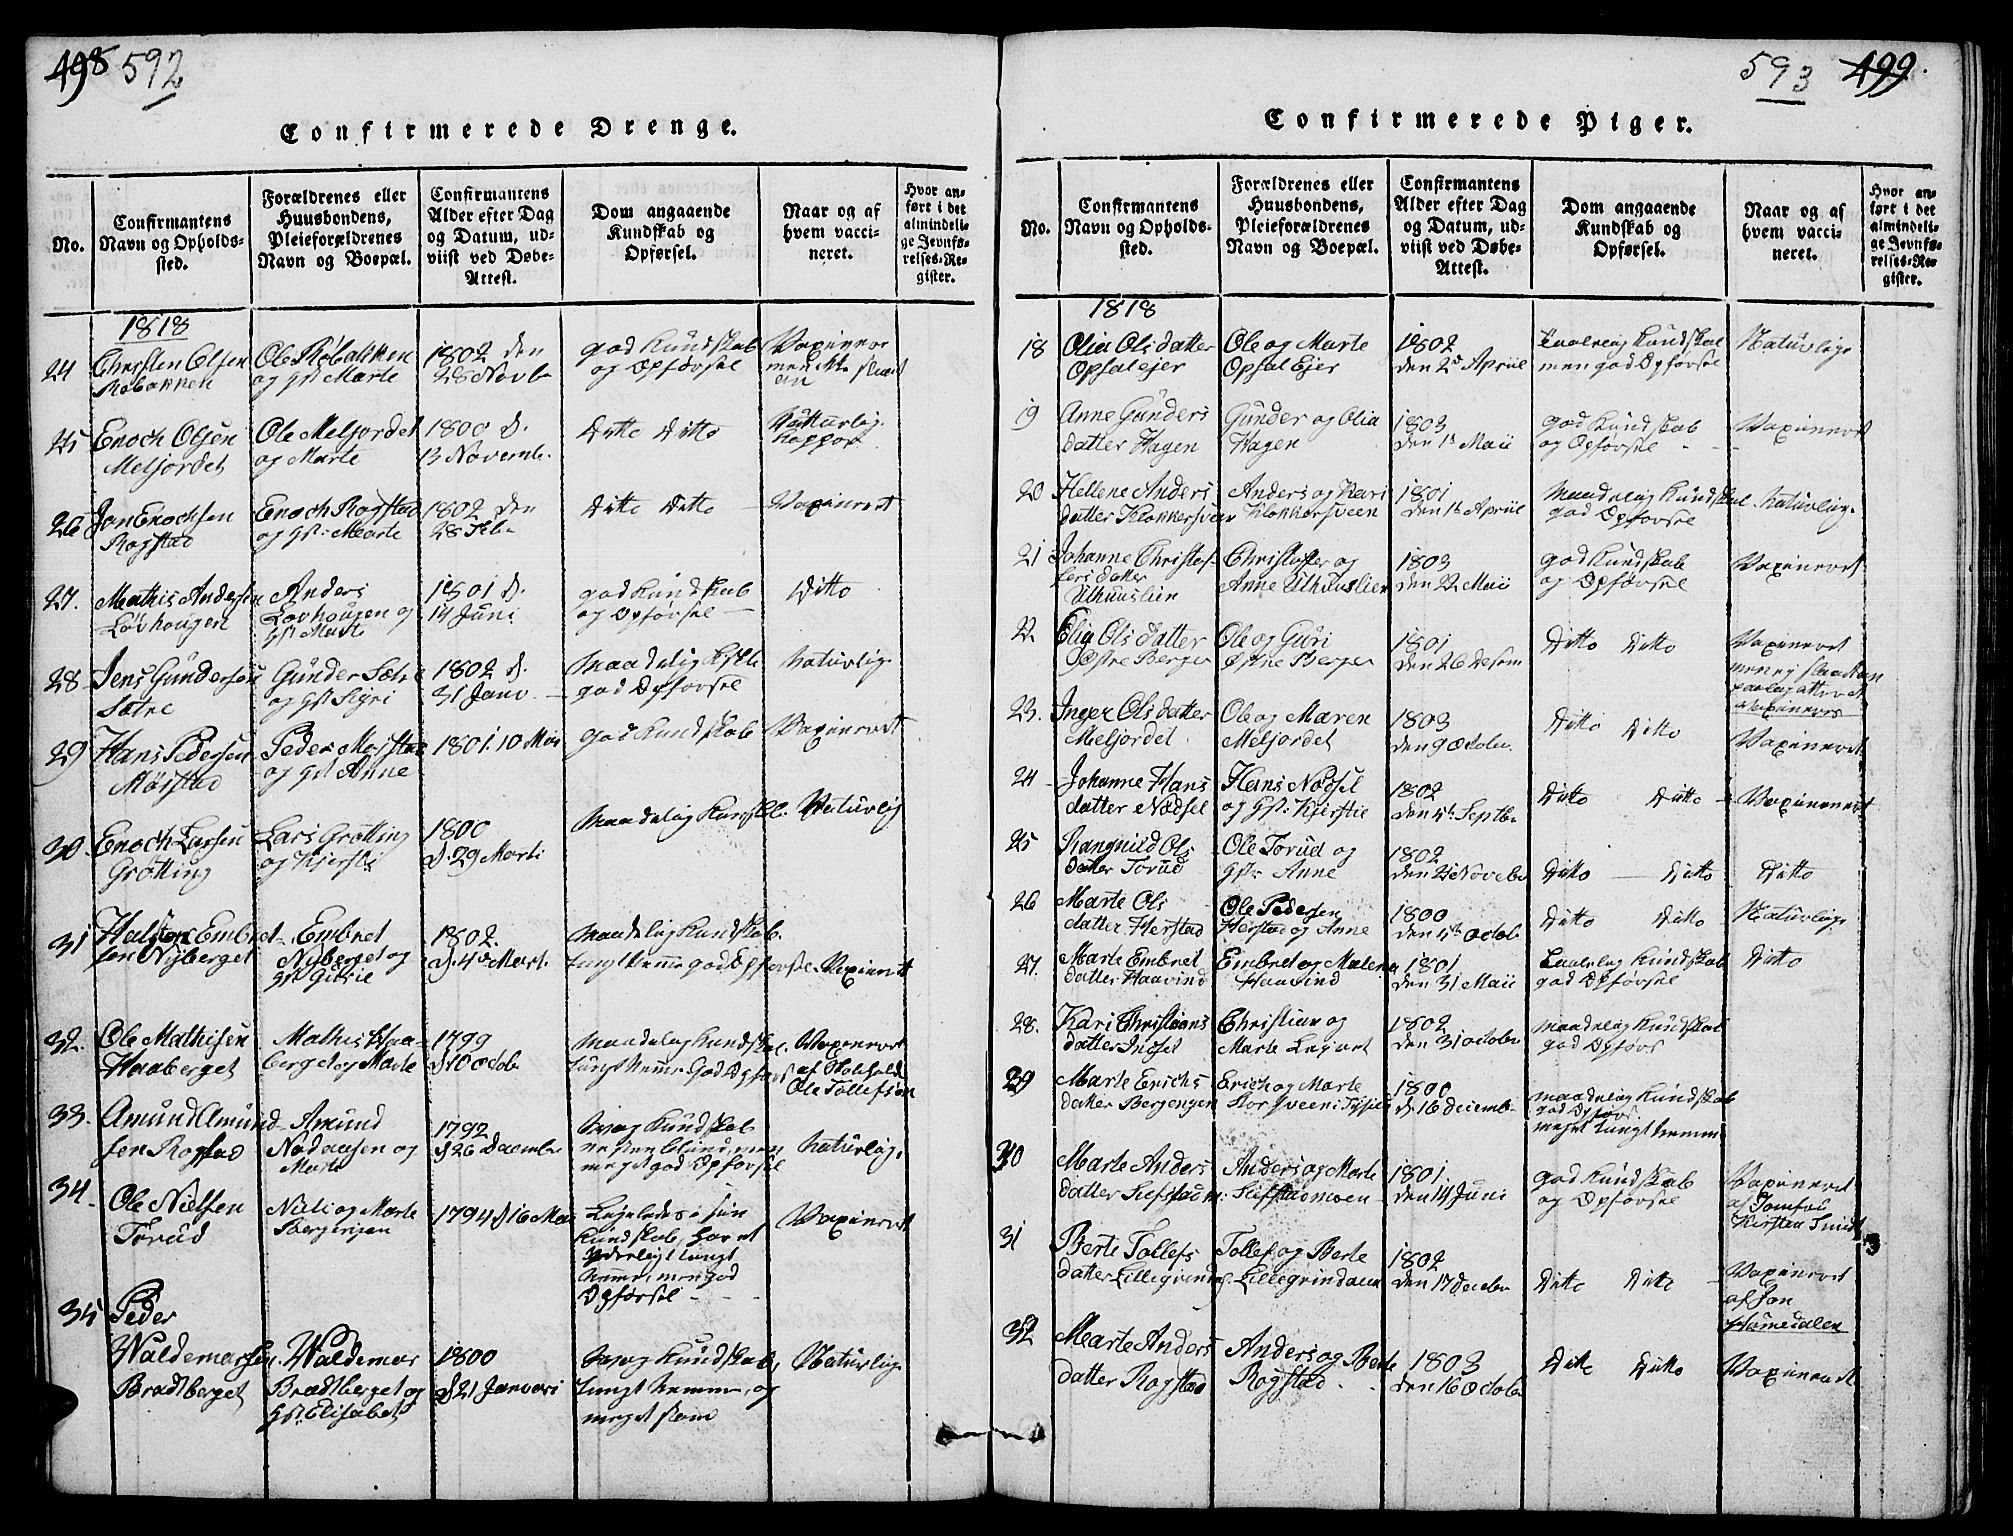 498 592
Confirmerede Drenge.
No.
Confirmantens
Navn og Opholds-
sted.
Forældrenes eller
Huusbondens,
Pleieforældrenes
Navn og Boepæl.
Confirmantens
Alder efter Dag
og Datum, ud-
viist ved Døbe-
Attest.
Dom angaaende
Kundskab og
Opførsel.
Naar og af
hvem vacci-
neret.
Hvor an-
ført i det
almindeli-
ge Jevnfø-
relses-Re-
gister.
1818
24
Christen Olsen
Røbakken
Ole Røbakken
og Gst Marte
1802 den
28 Novb
god Kundskab
og Opførsel
25
Enoch Olsen
Meljordet
Ole Meljordet
og Marte
1800 d.
13 Novemb.
Ditto Ditto
26
Jon Enochsen
Rogstad
Enoch Rogstad
og Gst: Marte
1802 den
28 Feb
Ditto Ditto
Vaxineret
27.
Mathis Andersen
Løvhougen
Anders
Lovhougen og
Gst Marte
1801 d.
14 Juni
god Kundskab
og Opførsel
Ditto
28
Jens Gundersen
Sætre
Gunder Sætre
og Gst Sigri
1802 d.
31 Janv.
god Opførsel
naturlig
29
Hans Pedersen
Møistad
Peder Møistad
og Gst Anne
1801. 10 Mai
god Kundskab
Vaxineret
30
Enoch Larsen
Grøtting
Lars Grøtting
og Kjersti
1800
d. 29 Marti
Naturlig
31
Halsten Embret-
sen Nyberget
Embret
Nyberget og
Gst Gurie
1802.
d. 4de Mart.
maadelig Kundskab.
tungt Nemme god Opførsel
Vaxineret
32.
Ole Mathisen
Haaberget
Mathis Haa-
berget og Marte
1799
d 10 Octob
maadelig Kundskab.
tungt Nemme God Opførs
Vaxineret
Ole Tollefsen
33.
Amund Amund-
sen Rogstad
Amund
og
Marte
1792
d 26 Decemb
svag Kundskab
næsten blind, men
meget god Opførsel
naturlig,
34.
Ole Nielsen
Torud
Niels og Marte
Bergengen
1794 d 16 Mai
Kundskab, har et
tungt
Nemme, men god
Opførsel
Vaxineret
35
Peder
Waldemarsen
Brædtberget
Waldemar
Brædtberget og
Gst. Elisabet
1800
d 21 Januari
svag Kundskab,
tungt Nemme, og
meget
Naturlig
593 499.
Confirmerede Piger.
No.
Confirmantens
Navn og Opholds-
sted.
Forældrenes eller
Huusbondens,
Pleieforældrenes
Navn og Boepæl.
Confirmantens
Alder efter Dag
og Datum, ud-
viist ved Døbe-
Attest.
Dom angaaende
Kundskab og
Opførsel.
Naar og af
hvem vacci-
neret.
Hvor an-
ført i det
almindeli-
ge Jevnfø-
relses-Re-
gister.
1818
18
Olia Olsdatter
Opsal ejer
Ole og Marte
Opsal Ejer
1802
den 2d Apriil
Kundskab
men god Opførsel
Naturlige
19
Anne Gunders
datter Hagen
Gunder og Olia
Hagen
1803
den 1s Maii
god Kundskab
og Opførsel
Vaxineret
20
Hellene Anders
datter Klokkersveen
Anders og Kari
Klokkersveen
1801
den 1s Apriil
maadelig Kundskab
god Opførsel
naturlig.
21
Johanne Christof-
fersdatter
Ulhuuslien
Christoffer og
Anne Ulhuuslien
1803
den 22 Maii
god Kundskab
og Opførsel
Vaxineret
22
Elia Olsdatter
Østre Berger
Ole og Guri
Østre Berger
1801
den 26 Desem
Ditto Ditto
Vaxineret
23.
Inger Olsdatter
Meljordet
Ole og Maren
Meljordet
1803
den 9 Octobr.
Ditto Ditto
Vaxineret
24
Johanne Hans
datter Nødsel
Hans Nødsel
og Gst: Kjerstie
1802
den 4de Septbr
Ditto Ditto
Vaxineret
25
Rangnild Ols
datter Torud
Ole Torud og
Gst: Anne
1802
den 2d Novebr
Ditto Ditto
Ditto
26
Marte Ols
datter Herstad
Ole Pedersen
Herstad og Anne
1800
den 4de Octob
Ditto Ditto
Naturlig
27.
Marte Embret
datter Haavind
Embret og Malena
Haavind
1801
den 31 Maii
Kundskab
god Opførsel
Ditto
28.
Kari Christians
datter Indset
Christian og
Marte
1802
den 31 October
maadelig Kundskab
god Opførs
29
Marte Erichs
datter Bergengen
Erich og Marte
Storsveen i
1800
d. 16 Decemb
maadelig Kundskab
god Opførs
meget tungt nemme
30
Marte Anders
datter
Anders og Marte
1801.
den 14 Juni
god Kundskab
og Opførsel
Vaxineret
af Jomfru
Kirsten Smidt
31
Berte Tollefs
datter Lillegrind
Tollef og Berte
Lillegrindalen
1802
den 17 Decebr
Ditto Ditto
Vaxineret
af Jon
Hornedalen
32
Marte Anders
datter Rogstad
Anders og Berte
Rogstad
1803
den 16 Octobr
Ditto Ditto
Vaxineret